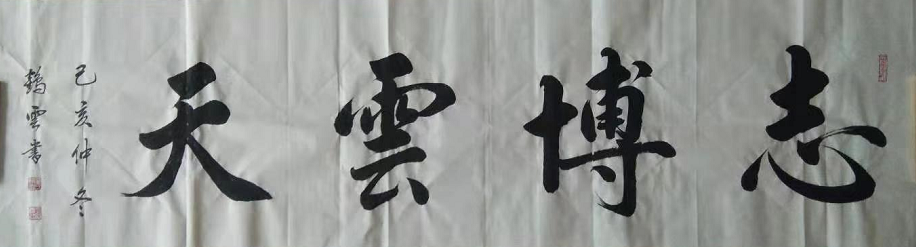 志博雲天
己亥仲冬
鶴雲書